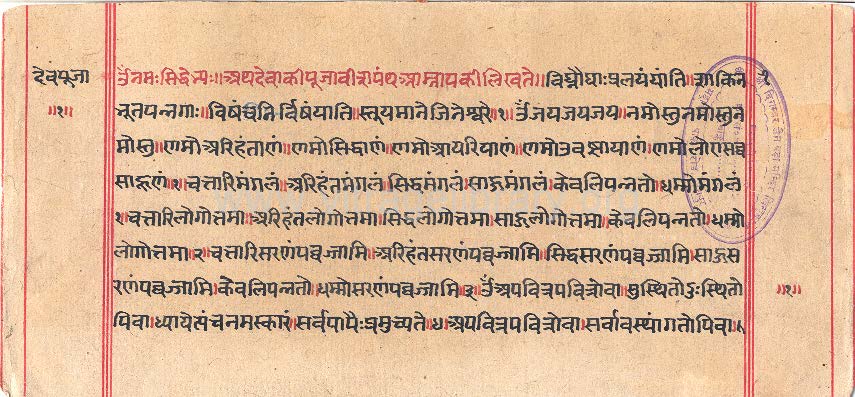 देवपूजा
॥१॥
ॐनमःसिद्धेभ्यः॥अथदेवाकीपूजावीसपंथआम्नायकीलिख्यते॥विघ्नौघाःप्रलयंयांति॥शाकिन
भूतपन्नगाः॥विषंनिर्विषंयाति॥स्तूयमानेजिनेश्वरे॥१॥ॐजयजयजय॥नमोस्तुनमोस्तुन
मोस्तु॥णमोअरिहंताणं॥णमोसिद्धाणं॥णमोआयरियाणं॥णमोउवज्झायाणं॥णमोलोएसव्व
साहूणं॥१॥चत्तारिमंगलं॥अरिहंतमंगलं॥सिद्धमंगलं॥साहूमंगलं॥केवलिपन्नतो॥धम्मोमंगलं
१॥चत्तारिलोगोत्तमा॥अरिहंतलोगोत्तमा॥सिद्धलोगोत्तमा॥साहूलोगोत्तमा॥केवलिपन्नतो॥धम्मो
लोगोत्तमा॥२॥चत्तारिसरणंपव्वज्जामि॥अरिहंतसरणंपव्वज्जामि॥सिद्धसरणंपव्वज्जामि॥साहूस
रणंपव्वज्जामि॥केवलिपन्नतो॥धम्मोसरणंपव्वज्जामि॥३॥ॐअपवित्रपवित्रोवा॥सुस्थितोदुःस्थितो
पिवा॥ध्यायेत्पंचनमस्कारं॥सर्वपापैःप्रमुच्यते॥४॥अपवित्रपवित्रोवा॥सर्वावस्थांगतोपिवा॥
१
॥१॥